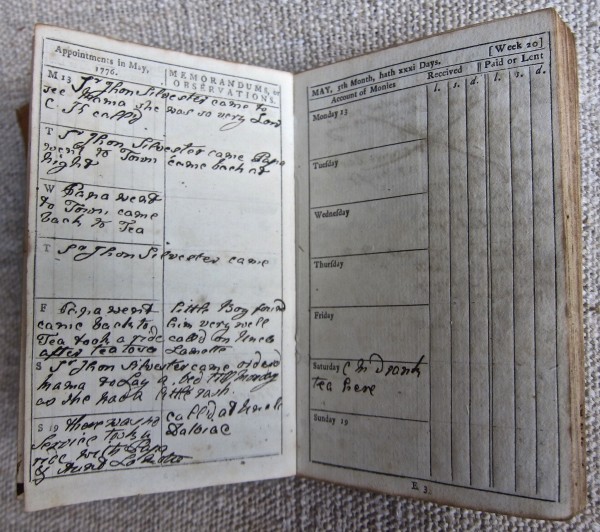 Appointments in May, 1776.
MEMORANDUMS, or OBSERVATIONS.
M 13 Sr Jhon Silvester came to
see Mama she was so very
C. Th called
T Sr Jhon Silvester came Papa
went to Town came back at
night
W Papa went
to Town, came
back to Tea
T Sr Jhon Silvester came
F Papa went
came back to
Tea took a ride
after tea
little Boy found
him very well
called on Uncle
Lamotte
S Sr Jhon Silvester came
Mama to Lay a bed till
as she had a little rash
S 19 there was no
service took a
ride with Papa
& Aunt Lamotte
called at Uncle
Dalbiac
[Week 20]
MAY, 5th Month, hath xxxi Days.
Account of Monies
Received
Paid or Lent
l. s. d. l. s. d.
Monday 13
Tuesday
Wednesday
Thursday
Friday
Saturday C M drank
tea here
Sunday 19
E 3.